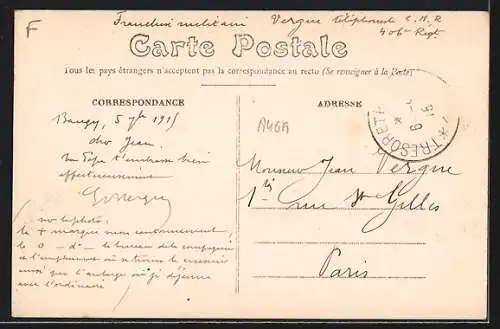 F
Franchise militaire
Vergue téléphoniste C.H.R
406e Régt
Carte Postale
Tous les pays étrangers n'acceptent pas la correspondance au recto (Se renseigner à la Poste)
CORRESPONDANCE
ADRESSE
A46A
TRESOR ET
6
15
5 7bre 1915
cher Jean
ton Papa t'embrasse bien
affectueusement
Monsieur Jean Vergue
1 bis rue St Gilles
Paris
sur la photo:
la + marque mon cantonnement,
le o – d° – le bureau de la compagnie
et l'emplacement où se trouve
ainsi que l'auberge où je déjeune
avec l'ordinaire